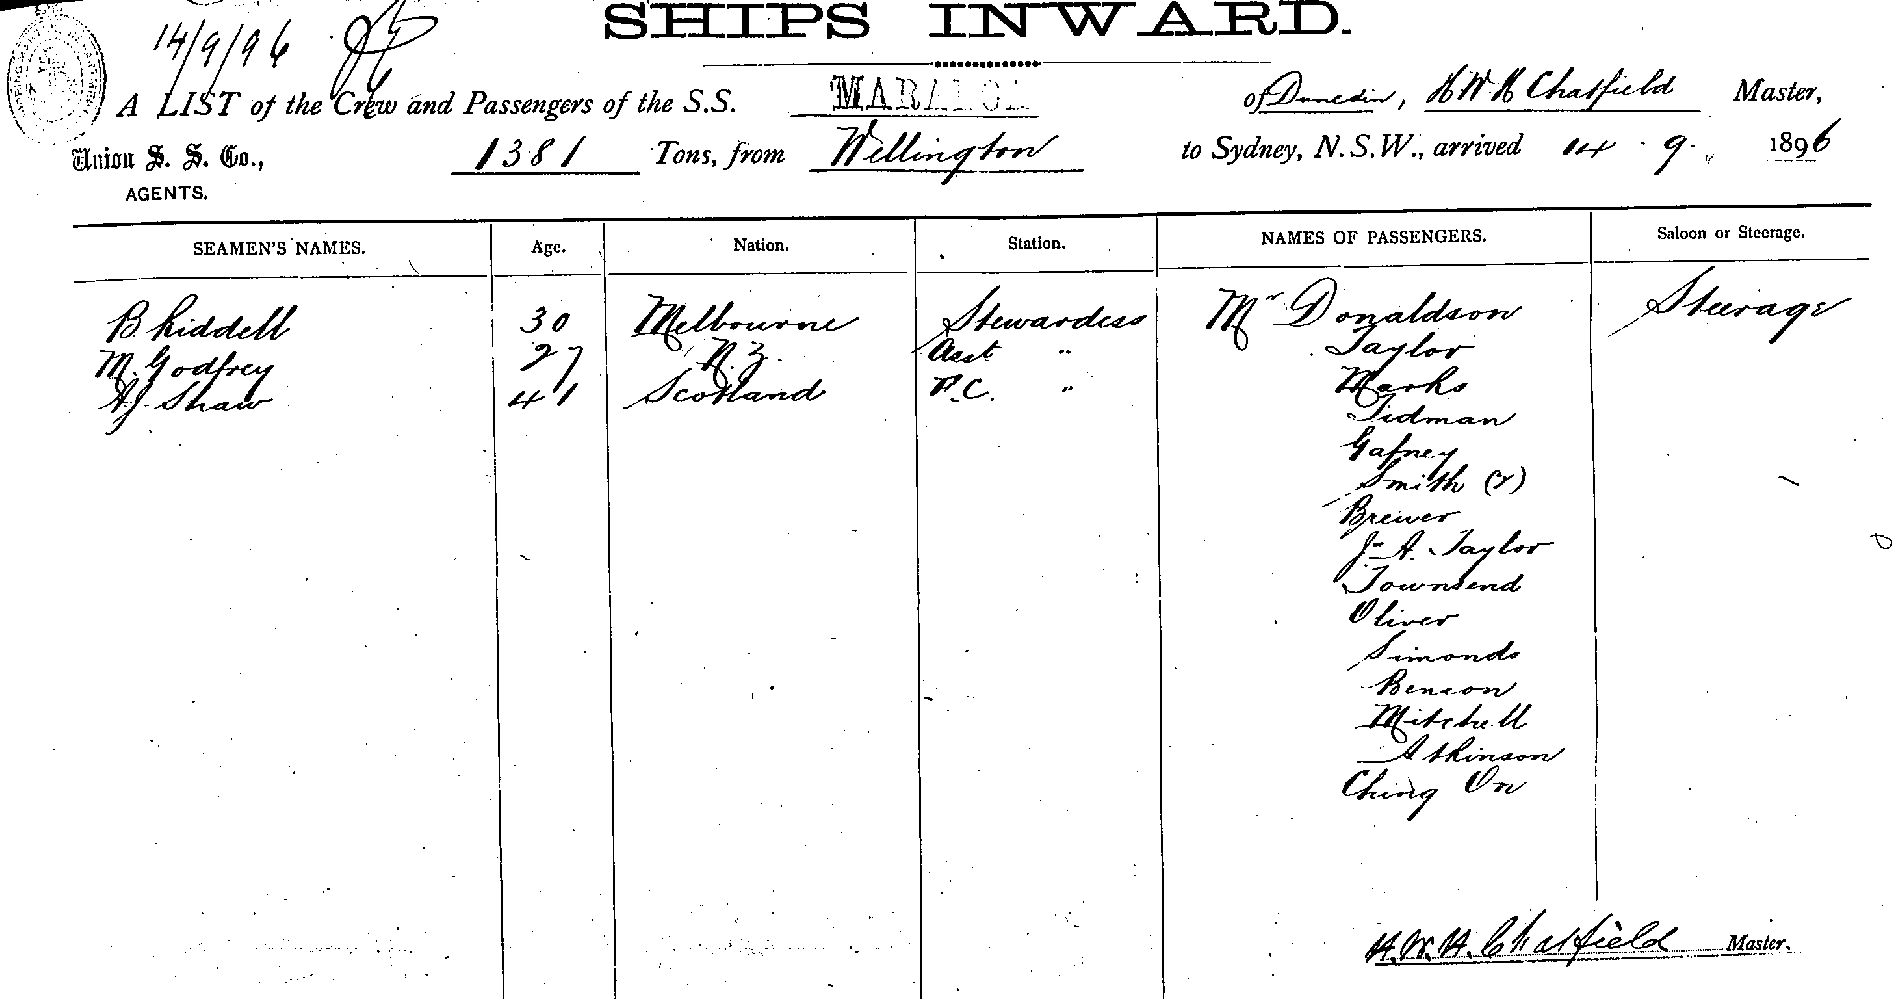 SHIPS INWARD.
14/9/96
A LIST of the Crew and Passengers of the S.S. MARAROA of Dunedin, H W H Chatfield Master,
Union S. S. Co., 1381 Tons, from Wellington to Sydney, N.S.W., arrived 14 . 9 . 1896
AGENTS.
SEAMEN'S NAMES. Age. Nation. Station. NAMES OF PASSENGERS. Saloon or Steerage.
B Liddell 30 Melbourne Stewardess Mr Donaldson Steerage
M. Godfrey 27 N.Z. Asst " Taylor
Shaw 41 Scotland F.C. " Marks
Tidman
Gafney
Smith (2)
Brewer
J. A. Taylor
Townsend
Oliver
Simonds
Benson
Mitchell
Atkinson
Ching On
H.W.H. Chatfield Master.